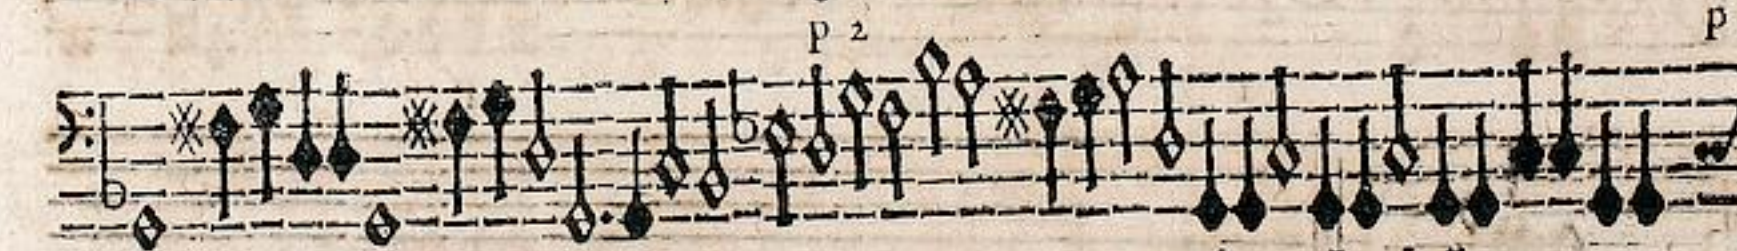 p 2 p